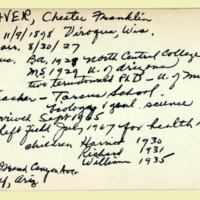 AVER, Chester Franklin
11/9/1898 Viroqua, Wis.
8/30/27
Ba, 1928 North Central College
MS 1929 U. of Arizona
two terms toward PhD - U. of
acher - Tarsus School.
biology & genl. science
rrived Sept 1965
left field July 1967 for health
children Harriet 1930
Richard 1931
William 1935
Grand Canyon Ave
Ariz.